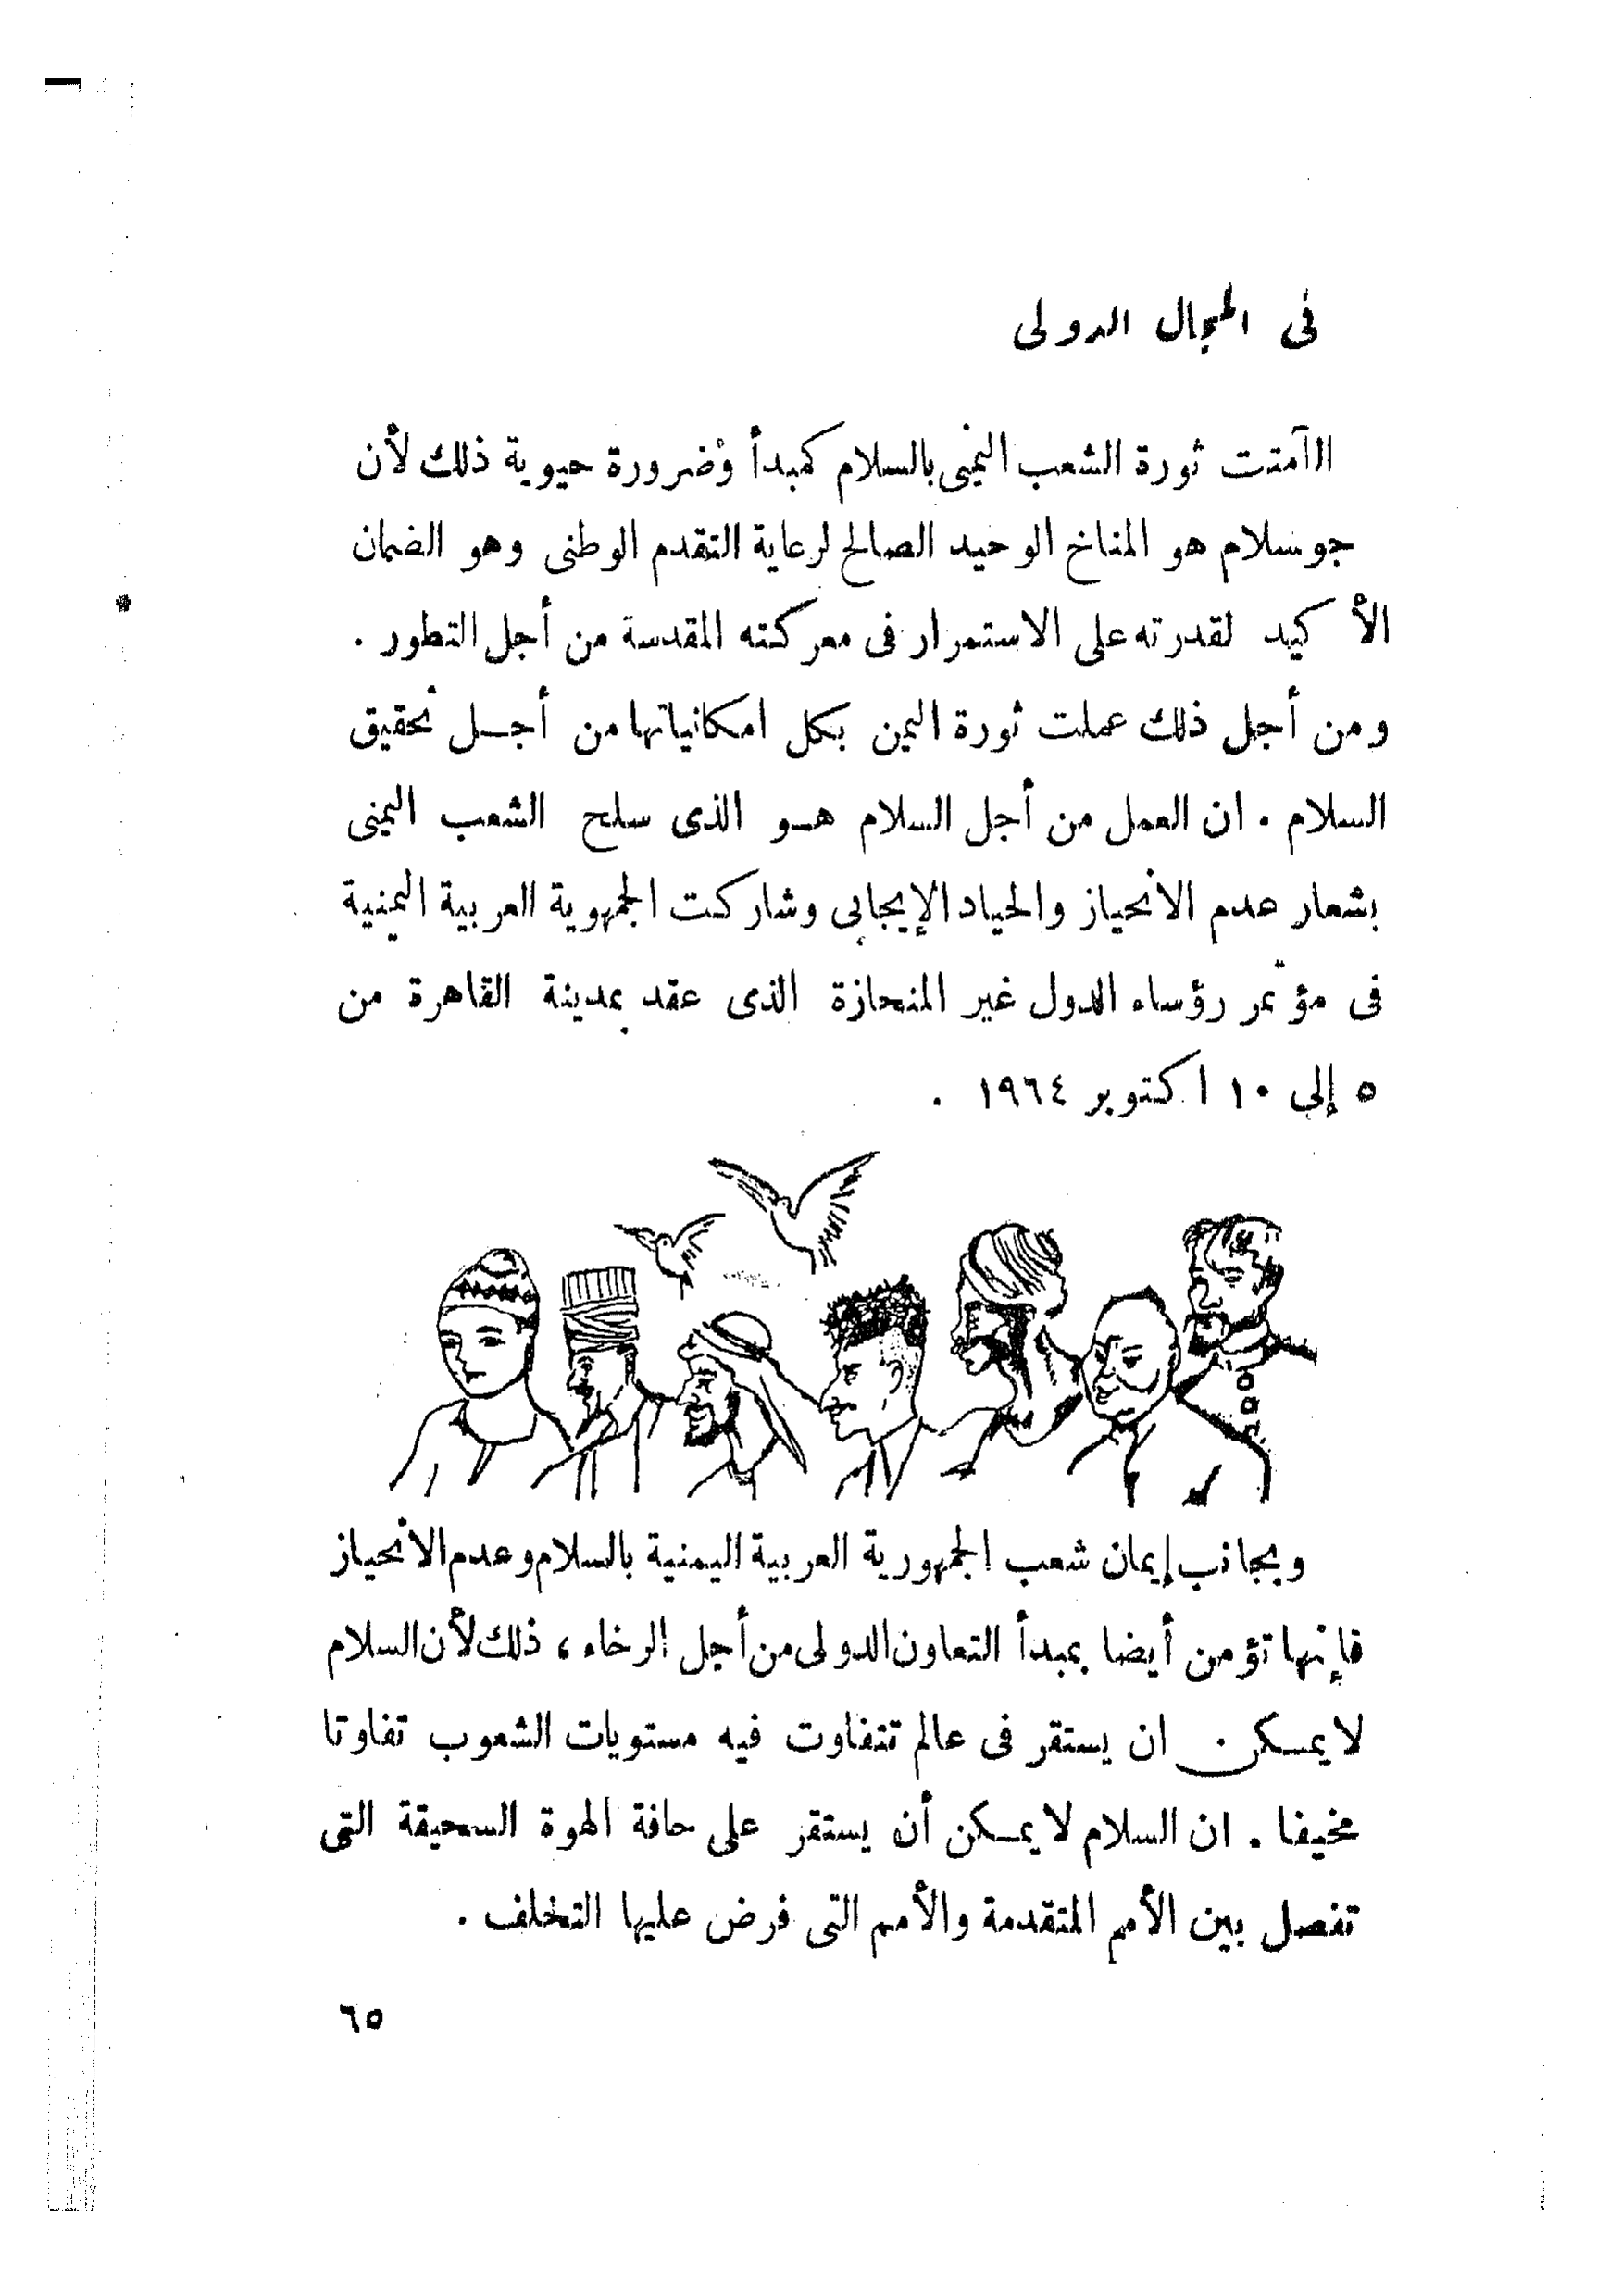 فى المجال الدولى
االآمنت ثورة الشعب اليمنى بالسلام كمبدأ وضرورة حيوية ذلك لأن
جو سلام هو المناخ الوحيد الصالح لرعاية التقدم الوطنى وهو الضمان
الأكيد لقدرته على الاستمرار فى معركته المقدسة من أجل التطور .
ومن أجل ذلك عملت ثورة اليمن بكل امكانياتها من أجل تحقيق
السلام . ان العمل من أجل السلام هو الذى سلح الشعب اليمنى
بشعار عدم الانحياز والحياد الإيجابى وشاركت الجمهوية العربية اليمنية
فى مؤتمر رؤساء الدول غير المنحازة الذى عقد بمدينة القاهرة من
٥ إلى ١٠ اكتوبر ١٩٦٤ .
وبجانب إيمان شعب الجمهورية العربية اليمنية بالسلام وعدم الانحياز
فإنها تؤمن أيضا بمبدأ التعاون الدولى من أجل الرخاء ، ذلك لأن السلام
لا يمكن ان يستقر فى عالم تتفاوت فيه مستويات الشعوب تفاوتا
مخيفا . ان السلام لا يمكن أن يستقر على حافة الهوة السحيقة التى
تفصل بين الأمم المتقدمة والأمم التى فرض عليها التخلف .
٦٥